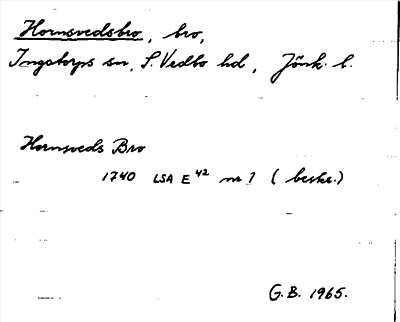 Hornsvedsbro, bro,
Ingatorps sn, S. Vedbo hd, Jönk. l.
Hornsveds Bro
1740 LSA E 42 nr 1 (beskr.)
G.B. 1965.